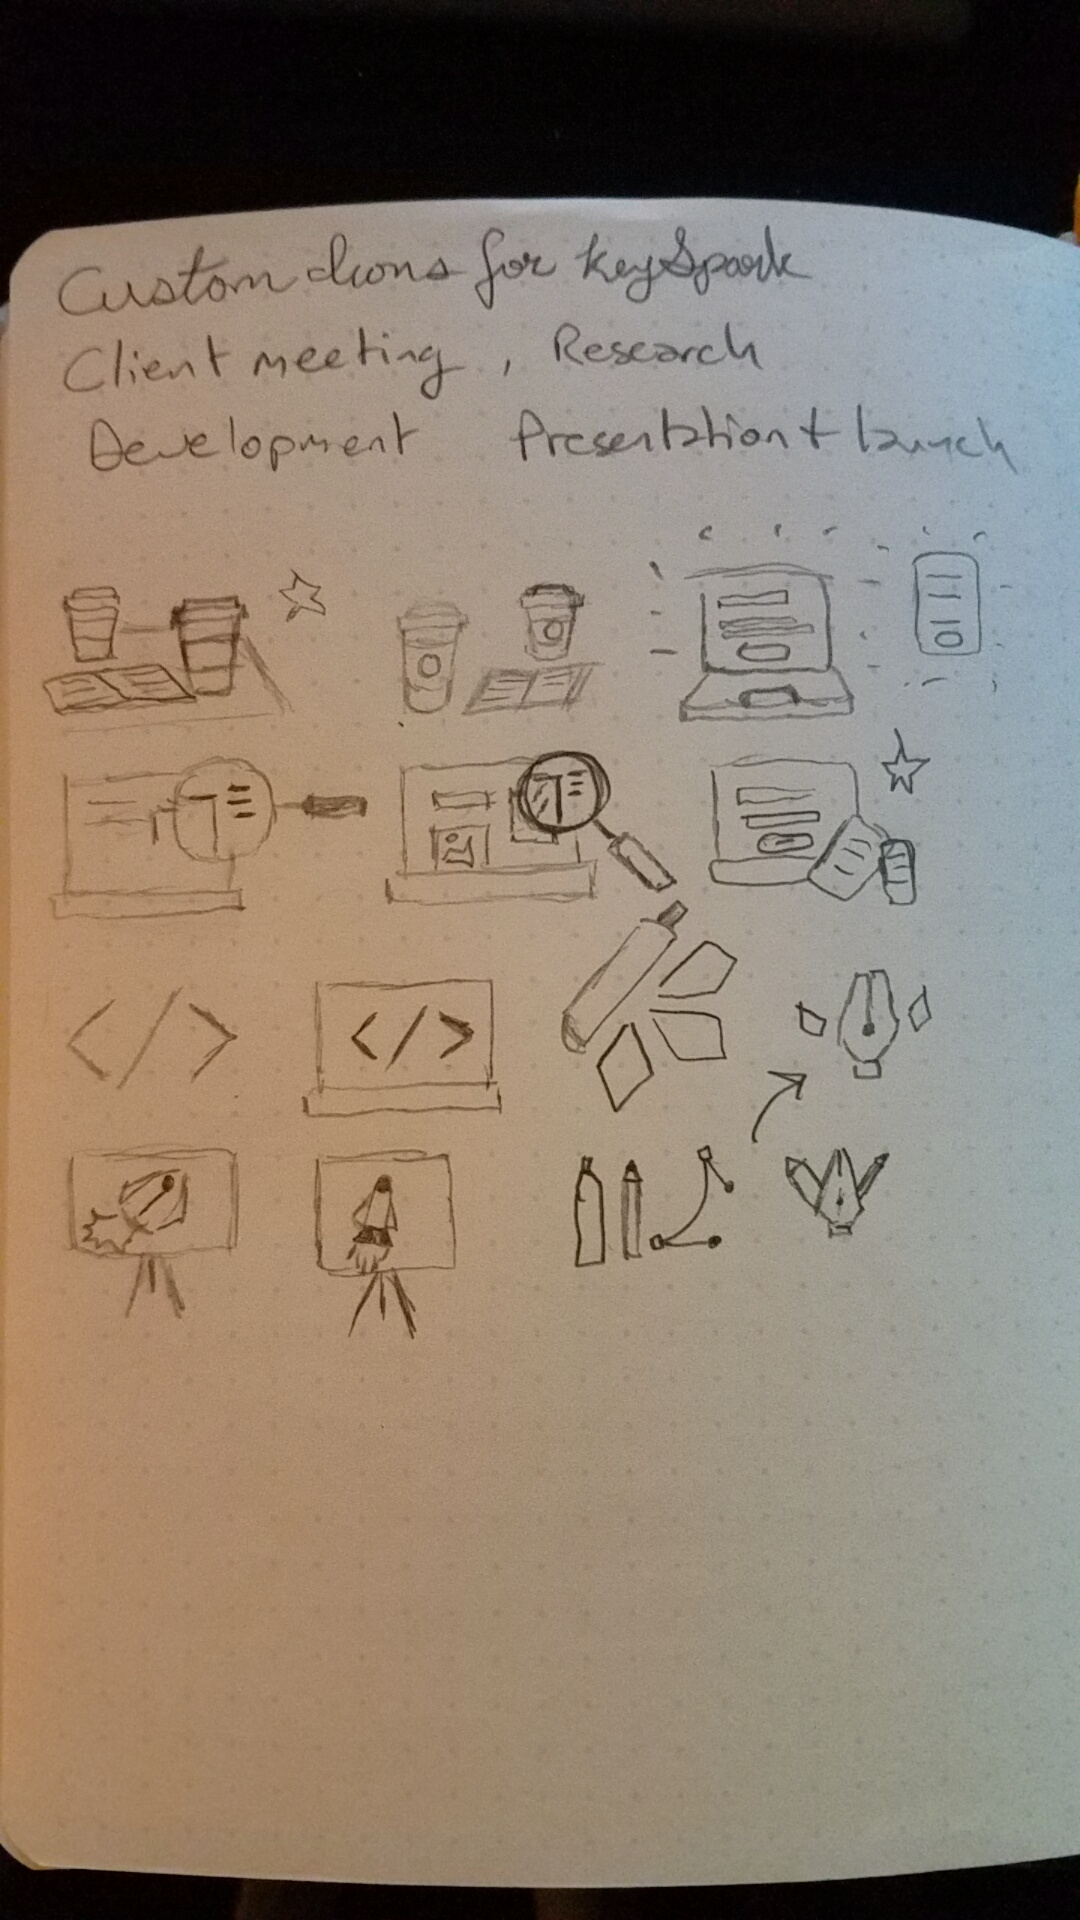 Custom Icons for KeySpark
Client meeting , Research
Development Presentation + launch
</>
</>